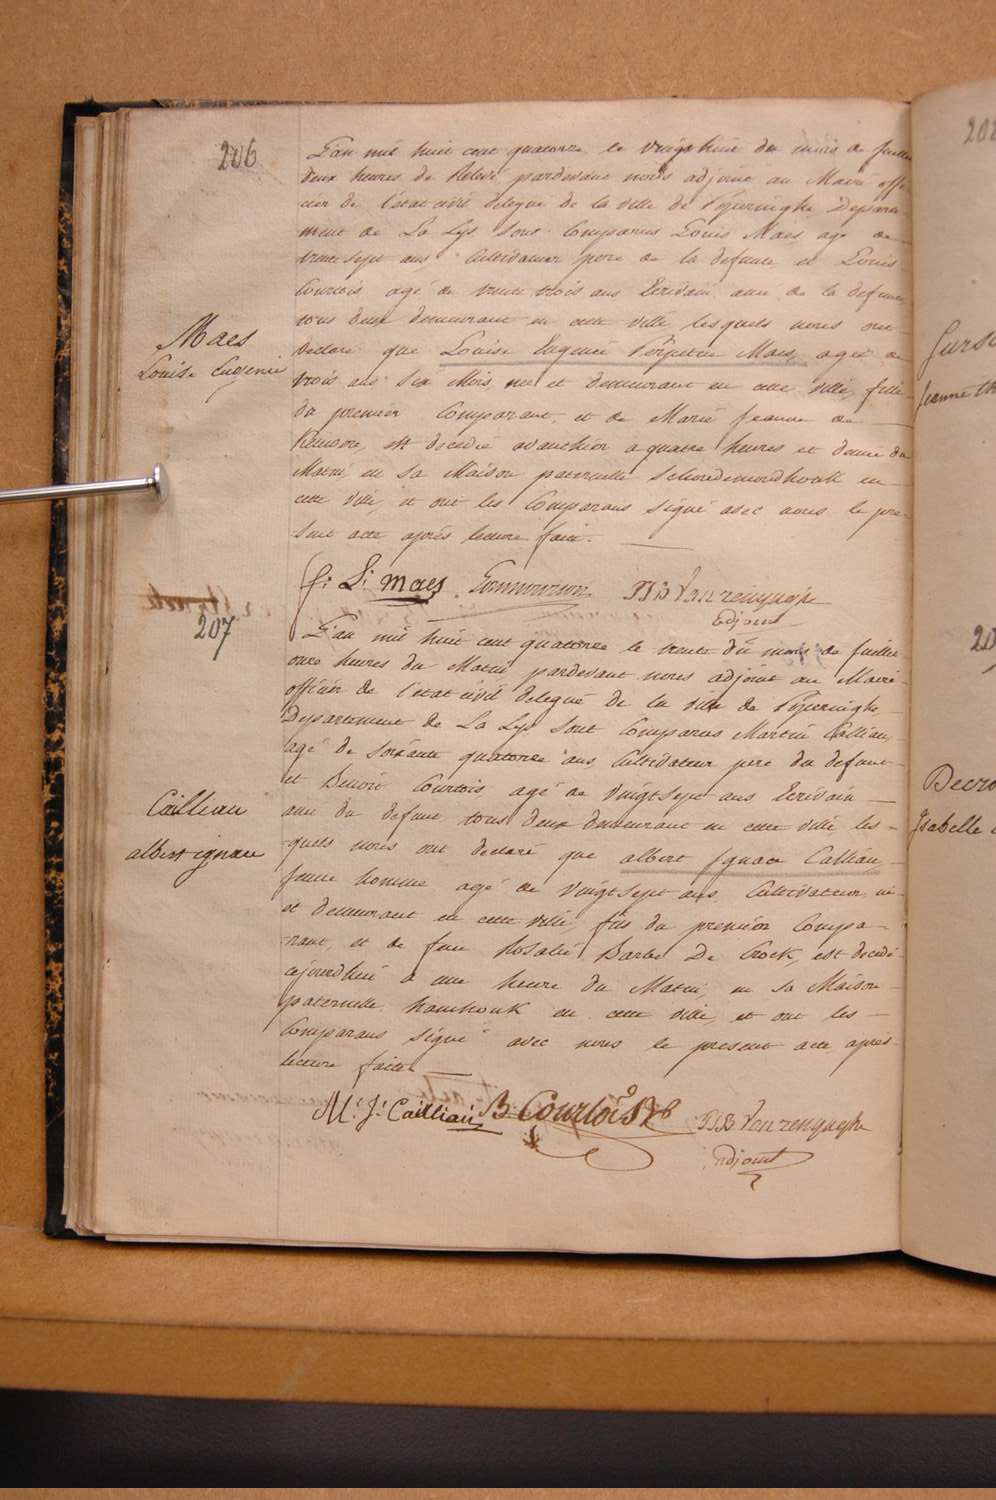 206
L'an mil huit cent quatorze le vingt huit du mois de juillet
deux heures de Relevé pardevant nous adjoint au Maire offi-
cier de l'etat civil delegué de la ville de Poperinghe Departe
ment de La Lys sont Comparus Louis Maes agé de
trente sept ans Cultivateur pere de la defunte et Louis
Courtois agé de trente trois ans Ecrivain ami de la defunte
tous deux demeurant en cette ville lesquels nous ont
declaré que Louise Eugenie Perpetue Maes, agée de
trois ans six Mois, née et demeurant en cette ville, fille
du premier Comparant, et de Marie Jeanne de
est decedée avanthier a quatre heures et demie du
Matin, en sa Maison paternelle en
cette ville, et ont les Comparans signé avec nous le pre-
sent acte après lecture faite.
Maes
Louise Eugenie
L: Maes PJB Van renynghe
adjoint
207
L'an mil huit cent quatorze le trente du mois de juillet
onze heures du Matin pardevant nous adjoint au Maire
officier de l'etat civil delegué de la ville de Poperinghe,
Departement de La Lys sont Comparus Martin Calliau,
agé de soixante quatorze ans, Cultivateur pere du defunt
et Benoit Courtois agé de vingt sept ans Ecrivain
ami du defunt tous deux demeurant en cette ville les-
quels nous ont declaré que albert Ignace Calliau,
jeune homme agé de vingt sept ans Cultivateur né
et demeurant en cette ville, fils du premier Compa-
rant, et de feue Rosalie Barbe De Crock, est decedé
cejourdhui a une heure du Matin, en sa Maison
paternelle, hamhouk en cette ville, et ont les
Comparans signé avec nous le present acte après
lecture faite.
Cailliau
albert ignace
M: J: Cailliau B Courtois PJB Van renynghe
adjoint
Jeanne
Decro
Isabelle